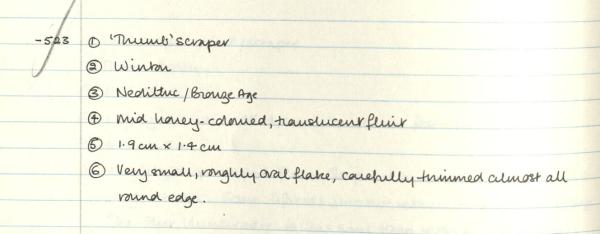 -523 ① 'Thumb' scraper
② Winton
③ Neolithic / Bronze Age
④ Mid honey-coloured, translucent flint
⑤ 1.9 cm × 1.4 cm
⑥ Very small, roughly oval flake, carefully trimmed almost all
round edge.